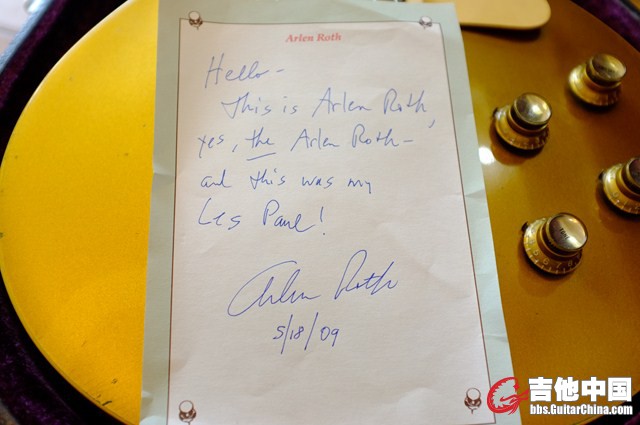 Arlen Roth
Hello-
This is Arlen Roth,
yes, the Arlen Roth-
and this was my
Les Paul!
Arlen Roth
5/18/09
吉他中国
bbs.GuitarChina.com